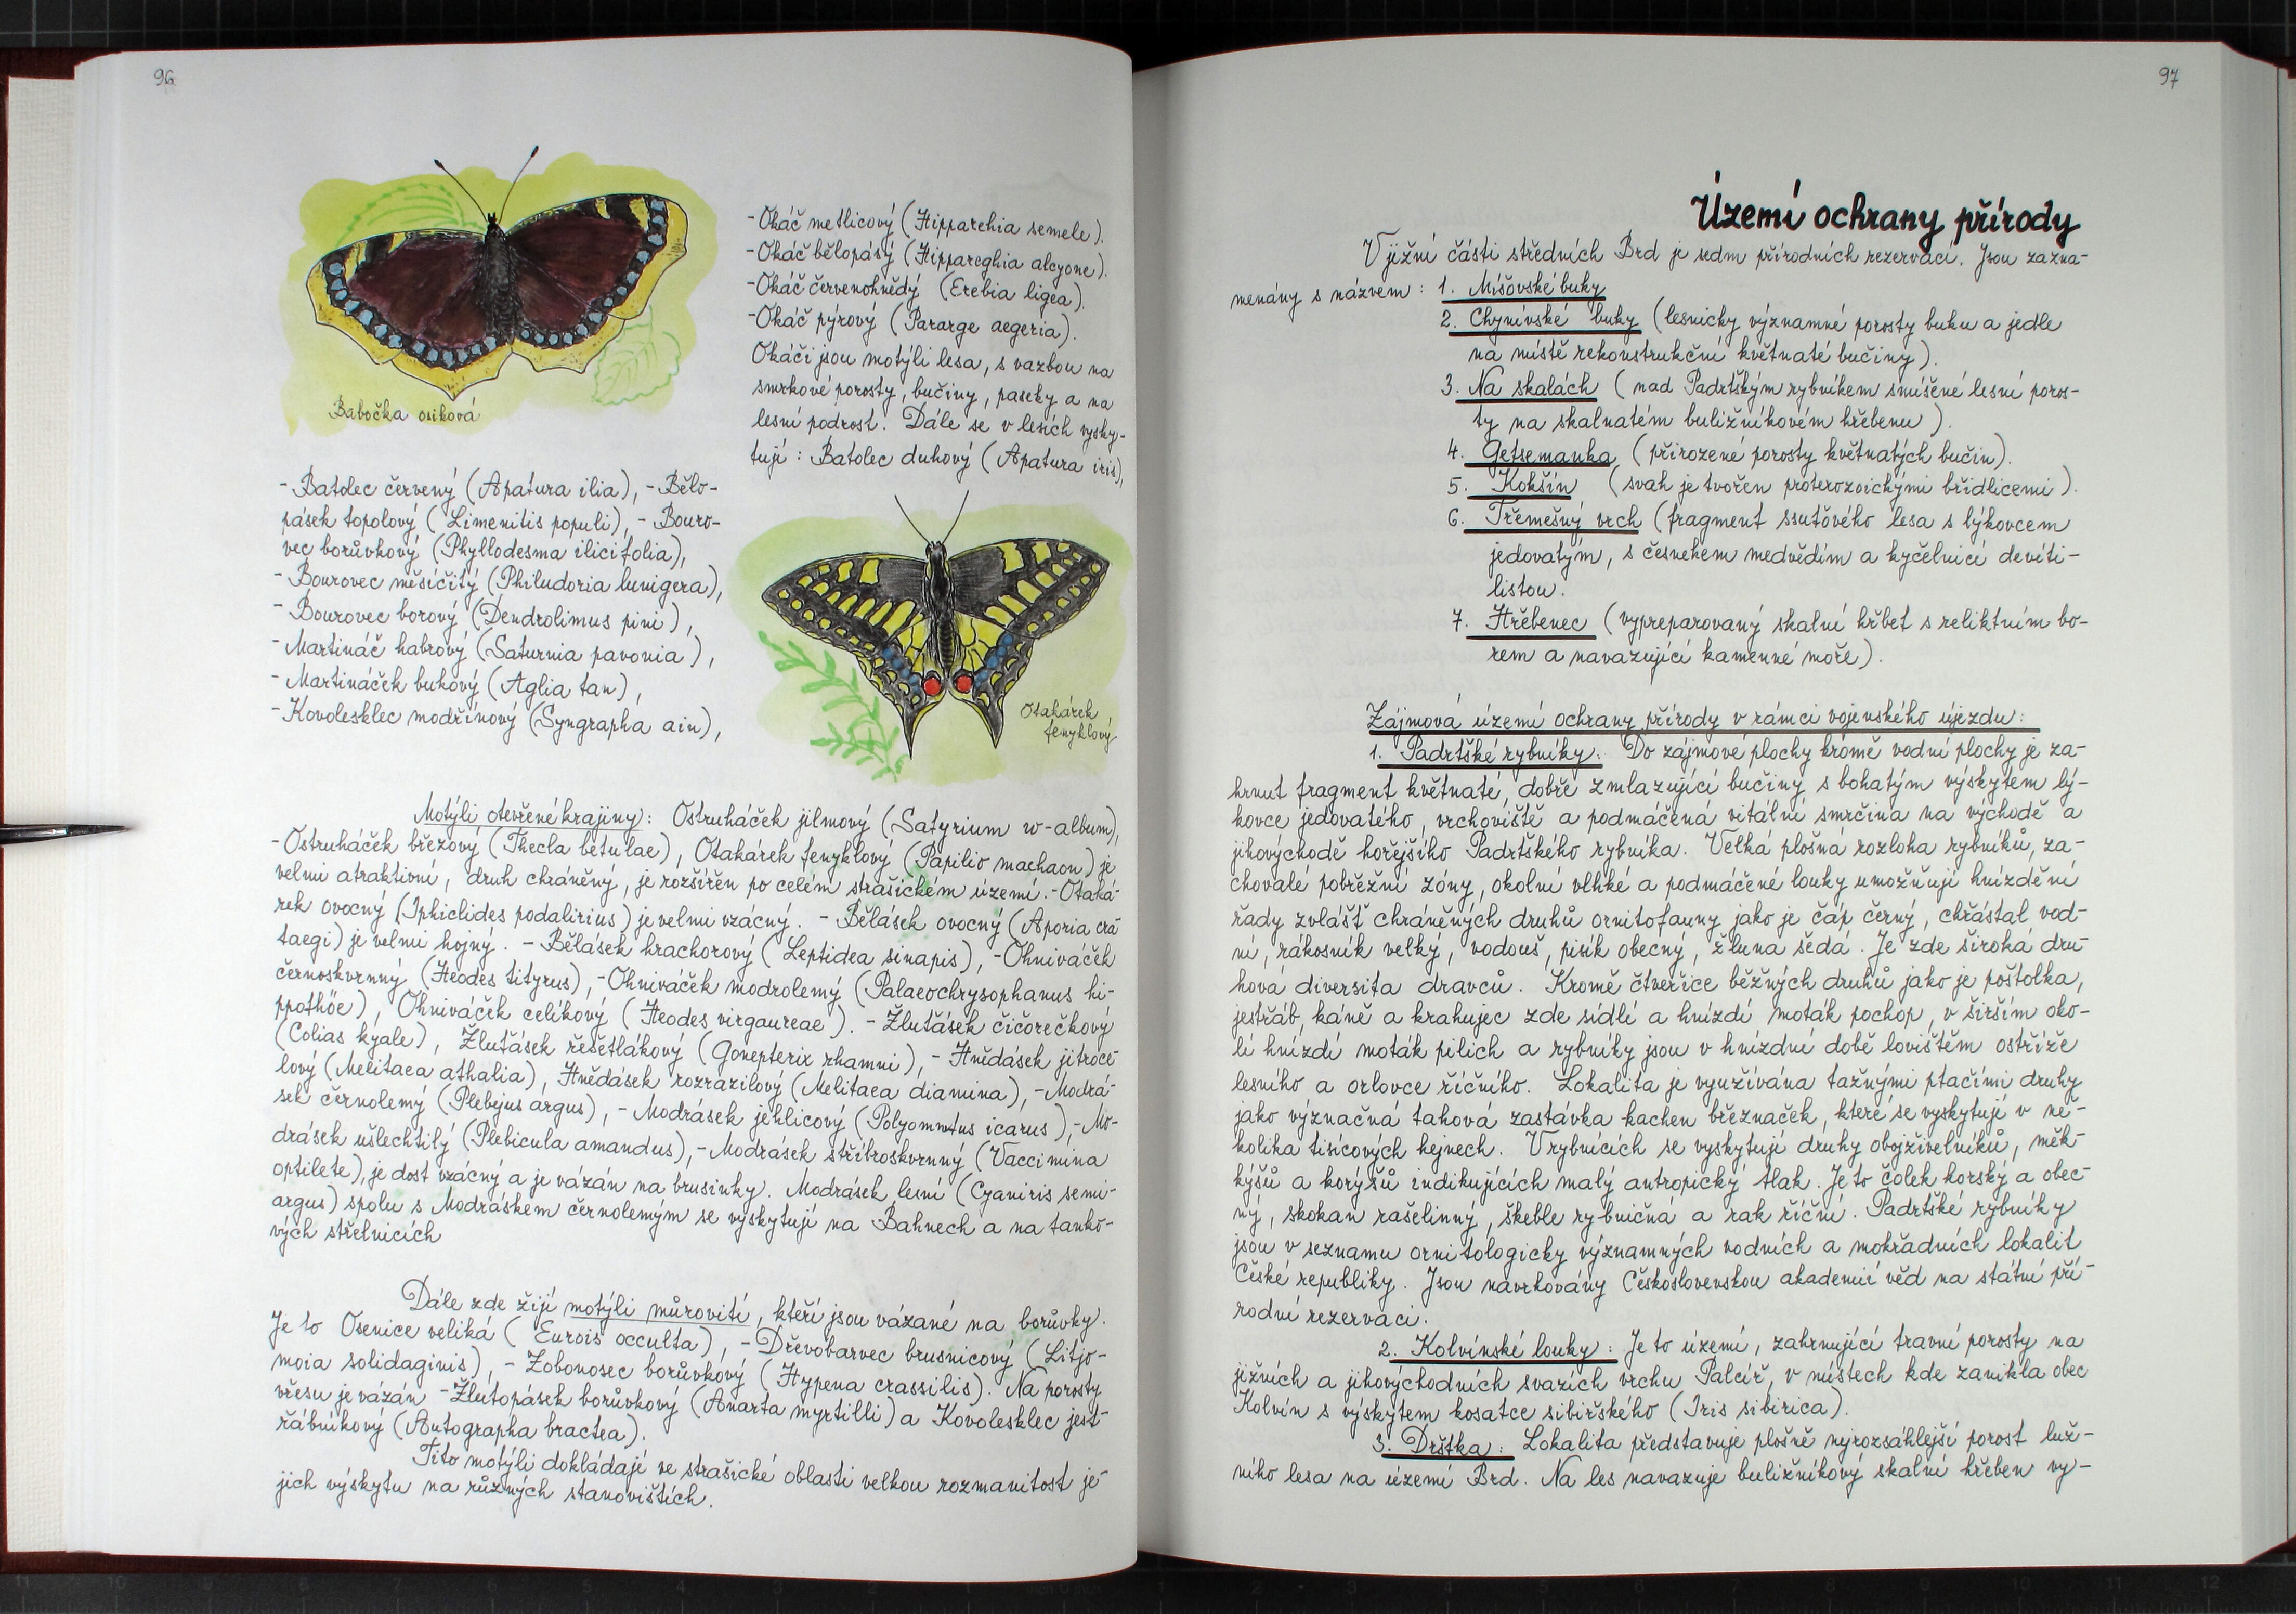 96
- Okáč metlicový (Hipparchia semele).
- Okáč bělopásý (Hippareghia alcyone).
- Okáč červenohnědý (Erebia ligea).
- Okáč pýrový (Pararge aegeria).
Okáči jsou motýli lesa, s vazbou na
smrkové porosty, bučiny, paseky a na
lesní podrost. Dále se v lesích vysky-
tují : Batolec duhový (Apatura iris),
Babočka osiková
- Batolec červený (Apatura ilia), - Bělo-
pásek topolový (Limenitis populi), - Bouro-
vec borůvkový (Phyllodesma ilicifolia),
- Bourovec měsíčitý (Philudoria lunigera),
- Bourovec borový (Dendrolimus pini),
- Martináč habrový (Saturnia pavonia),
- Martináček bukový (Aglia tau),
- Kovolesklec modřínový (Syngrapha ain),
Otakárek
fenyklový
Motýli otevřené krajiny: Ostruháček jilmový (Satyrium w-album),
- Ostruháček březový (Thecla betulae), Otakárek fenyklový (Papilio machaon) je
velmi atraktivní, druh chráněný, je rozšířen po celém strašickém území. - Otaká-
rek ovocný (Iphiclides podalirius) je velmi vzácný. - Bělásek ovocný (Aporia cra-
taegi) je velmi hojný. - Bělásek hrachorový (Leptidea sinapis), - Ohniváček
černoskvrnný (Heodes tityrus), - Ohniváček modrolemý (Palaeochrysophanus hi-
ppothöe), Ohniváček celíkový (Heodes virgaureae). - Žluťásek čičorečkový
(Colias hyale), Žluťásek řešetlákový (Gonepterix rhamni), - Hnědásek jitroce-
lový (Melitaea athalia), Hnědásek rozrazilový (Melitaea diamina), - Modrá-
sek černolemý (Plebejus argus), - Modrásek jehlicový (Polyommtus icarus), - Mo-
drásek ušlechtilý (Plebicula amandus), - Modrásek stříbroskvrnný (Vaccimina
optilete), je dost vzácný a je vázán na brusinky. Modrásek lesní (Cyaniris semi-
argus) spolu s Modráskem černolemým se vyskytují na Bahnech a na tanko-
vých střelnicích
Dále zde žijí motýli můrovití, kteří jsou vázané na borůvky.
Je to Osenice veliká (Eurois occulta), - Dřevobarvec brusnicový (Litjo-
moia solidaginis), - Zobonosec borůvkový (Hypena crassilis). Na porosty
vřesu je vázán - Žlutopásek borůvkový (Anarta myrtilli) a Kovolesklec jest-
řábníkový (Autographa bractea).
Tito motýli dokládají ve strašické oblasti velkou rozmanitost je-
jich výskytu na různých stanovištích.
97
Území ochrany přírody
V jižní části středních Brd je sedm přírodních rezervací. Jsou zazna-
menány s názvem : 1. Míšovské buky
2. Chynívské buky (lesnicky významné porosty buku a jedle
na místě rekonstrukční květnaté bučiny).
3. Na skalách (nad Padrtským rybníkem smíšené lesní poros-
ty na skalnatém buližníkovém hřebenu).
4. Getsemanka (přirozené porosty květnatých bučin).
5. Kokšín (svah je tvořen proterozoickými břidlicemi).
6. Třemešný vrch (fragment ssuťového lesa s lýkovcem
jedovatým, s česnekem medvědím a kyčelnicí devíti-
listou.
7. Hřebenec (vypreparovaný skalní hřbet s reliktním bo-
rem a navazující kamenné moře).
Zájmová území ochrany přírody v rámci vojenského újezdu:
1. Padrtské rybníky: Do zájmové plochy kromě vodní plochy je za-
hrnut fragment květnaté, dobře zmlazující bučiny s bohatým výskytem lý-
kovce jedovatého, vrchoviště a podmáčená vitální smrčina na východě a
jihovýchodě hořejšího Padrtského rybníka. Velká plošná rozloha rybníků, za-
chovalé pobřežní zóny, okolní vlhké a podmáčené louky umožňují hnízdění
řady zvlášť chráněných druhů ornitofauny jako je čáp černý, chřástal vod-
ní, rákosník velký, vodouš, pisík obecný, žluna šedá. Je zde široká dru-
hová diversita dravců. Kromě čtveřice běžných druhů jako je poštolka,
jestřáb, káně a krahujec zde sídlí a hnízdí moták pochop, v širším oko-
lí hnízdí moták pilich a rybníky jsou v hnízdní době lovištěm ostříže
lesního a orlovce říčního. Lokalita je využívána tažnými ptačími druhy
jako význačná tahová zastávka kachen březnaček, které se vyskytují v ně-
kolika tisícových hejnech. V rybnících se vyskytují druhy obojživelníků, měk-
kýšů a korýšů indikujících malý antropický tlak. Je to čolek horský a obec-
ný, skokan rašelinný, škeble rybničná a rak říční. Padrtské rybníky
jsou v seznamu ornitologicky významných vodních a mokřadních lokalit
České republiky. Jsou navrhovány Československou akademií věd na státní pří-
rodní rezervaci.
2. Kolvínské louky : Je to území, zahrnující travní porosty na
jižních a jihovýchodních svazích vrchu Palcíř, v místech kde zanikla obec
Kolvín s výskytem kosatce sibiřského (Iris sibirica).
3. Drštka : Lokalita představuje plošně nejrozsáhlejší porost luž-
ního lesa na území Brd. Na les navazuje buližníkový skalní hřeben vy-